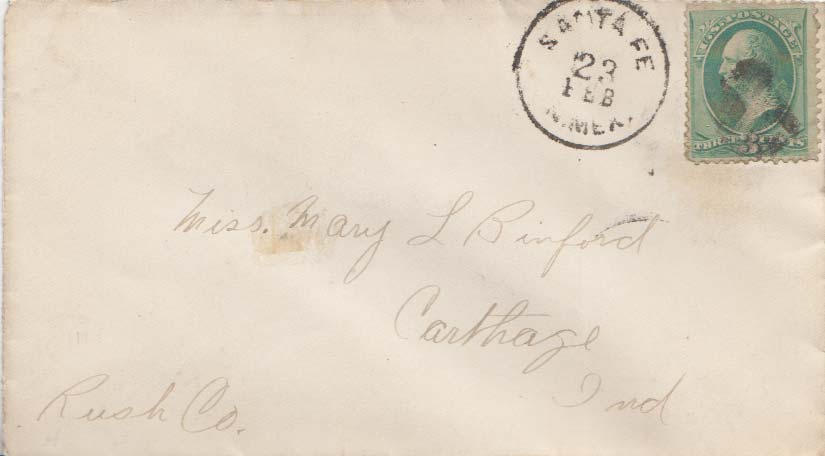 SANTA FE
23
FEB
N.MEX.
U.S. POSTAGE
3
THREE CENTS
Miss. Mary L Binford
Carthage
Ind
Rush Co.